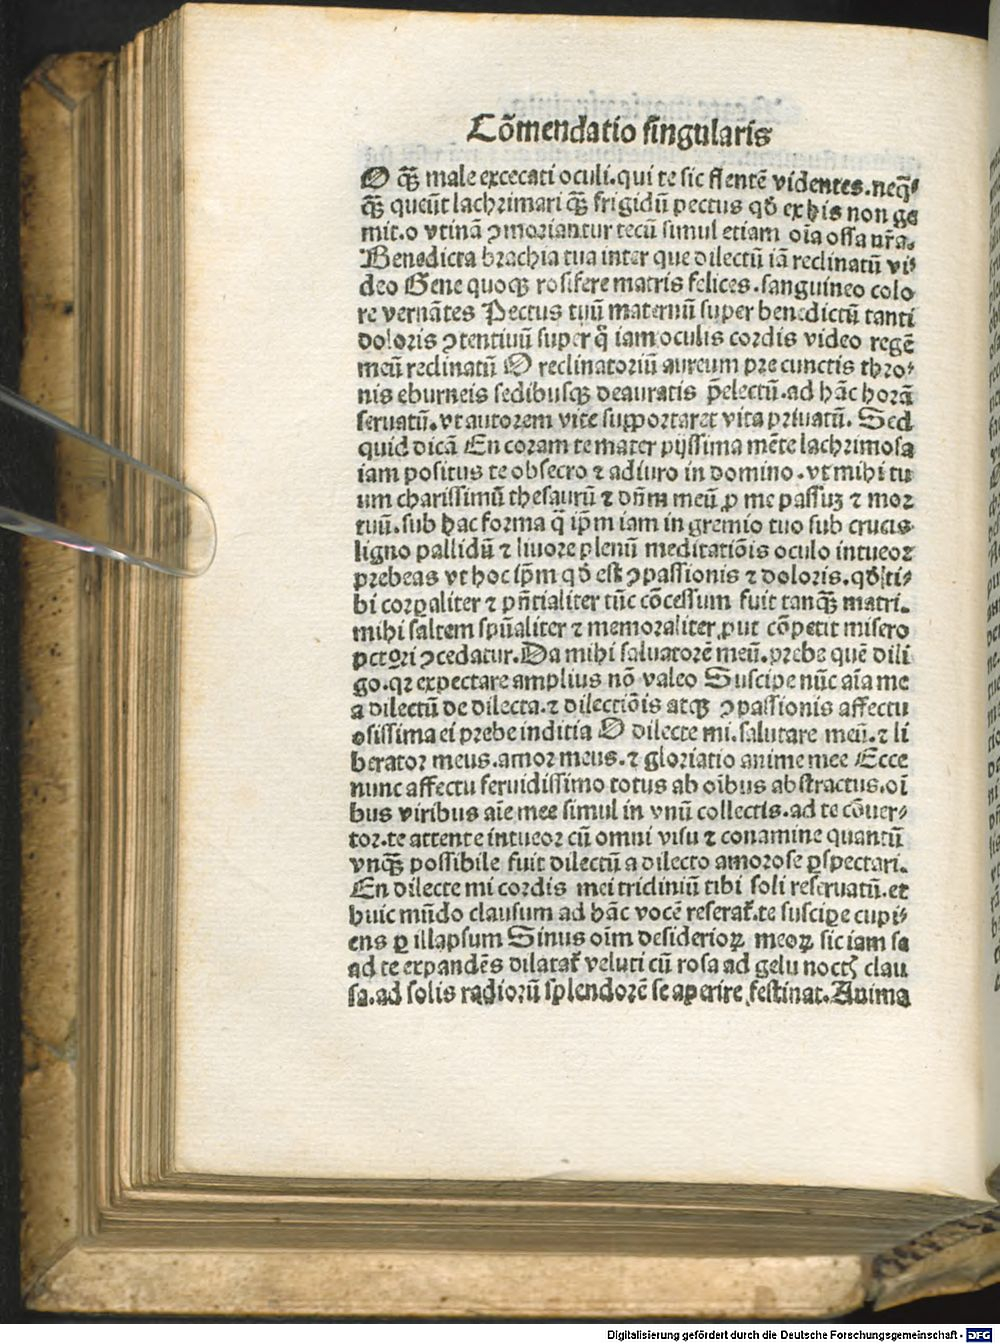 Cōmendatio singularis
O q̄ȝ male excecati oculi.qui te sic flentē videntes.neq̄ȝ
q̄ȝ queūt lachrimari q̄ȝ frigidū pectus qđ ex his non ge
mit.o vtinā ꝯmoriantur tecū simul etiam oīa ossa nr̄a.
Benedicta brachia tua inter que dilectū iā reclinatū vi⸗
deo Gene quoqȝ rosifere matris felices.sanguineo colo
re vernātes Pectus tuū maternū super benedictū tanti
doloris ꝯtentiuū super q̄ iam oculis cordis video regē
meū reclinatū O reclinatoriū aureum pre cunctis thro⸗
nis eburneis sedibusqȝ deauratis p̄electū.ad hāc horā
seruatū.vt autorem vite supportaret vita priuatū. Sed
quid dicā En coram te mater pijssima mēte lachrimosa
iam positus te obsecro ⁊ adiuro in domino.vt mihi tu
um charissimū thesaurū ⁊ dn̄m meū ꝓ me passuȝ ⁊ mor
tuū.sub hac forma q̄ ip̄m iam in gremio tuo sub crucis
ligno pallidū ⁊ liuore plenū meditatiōis oculo intueor
prebeas vt hoc ip̄m qđ est ꝯpassionis ⁊ doloris.qđ ti⸗
bi corꝑaliter ⁊ pn̄tialiter tūc cōcessum fuit tanq̄ȝ matri.
mihi saltem spūaliter ⁊ memoraliter ꝓut cōpetit misero
pctōri ꝯcedatur.Da mihi saluatorē meū.prebe quē dili
go.qr expectare amplius nō valeo Suscipe nūc aīa me
a dilectū de dilecta.⁊ dilectiōis atqȝ ꝯpassionis affectu
osissima ei prebe inditia O dilecte mi.salutare meū.⁊ li
berator meus.amor meus.⁊ gloriatio anime mee Ecce
nunc affectu feruidissimo totus ab oībus abstractus.oī
bus viribus aīe mee simul in vnū collectis.ad te cōuer⸗
tor.te attente intueor cū omni visu ⁊ conamine quantū
vnq̄ȝ possibile fuit dilectū a dilecto amorose ꝑspectari.
En dilecte mi cordis mei tricliniū tibi soli reseruatū.et
huic mūdo clausum ad hāc vocē reserať.te suscipe cupi⸗
ens ꝑ illapsum Sinus oīm desiderioꝝ meoꝝ sic iam se
ad te expandēs dilatať veluti cū rosa ad gelu noctꝭ clau
sa.ad solis radiorū splendorē se aperire festinat.Anima
Digitalisierung gefördert durch die Deutsche Forschungsgemeinschaft - DFG